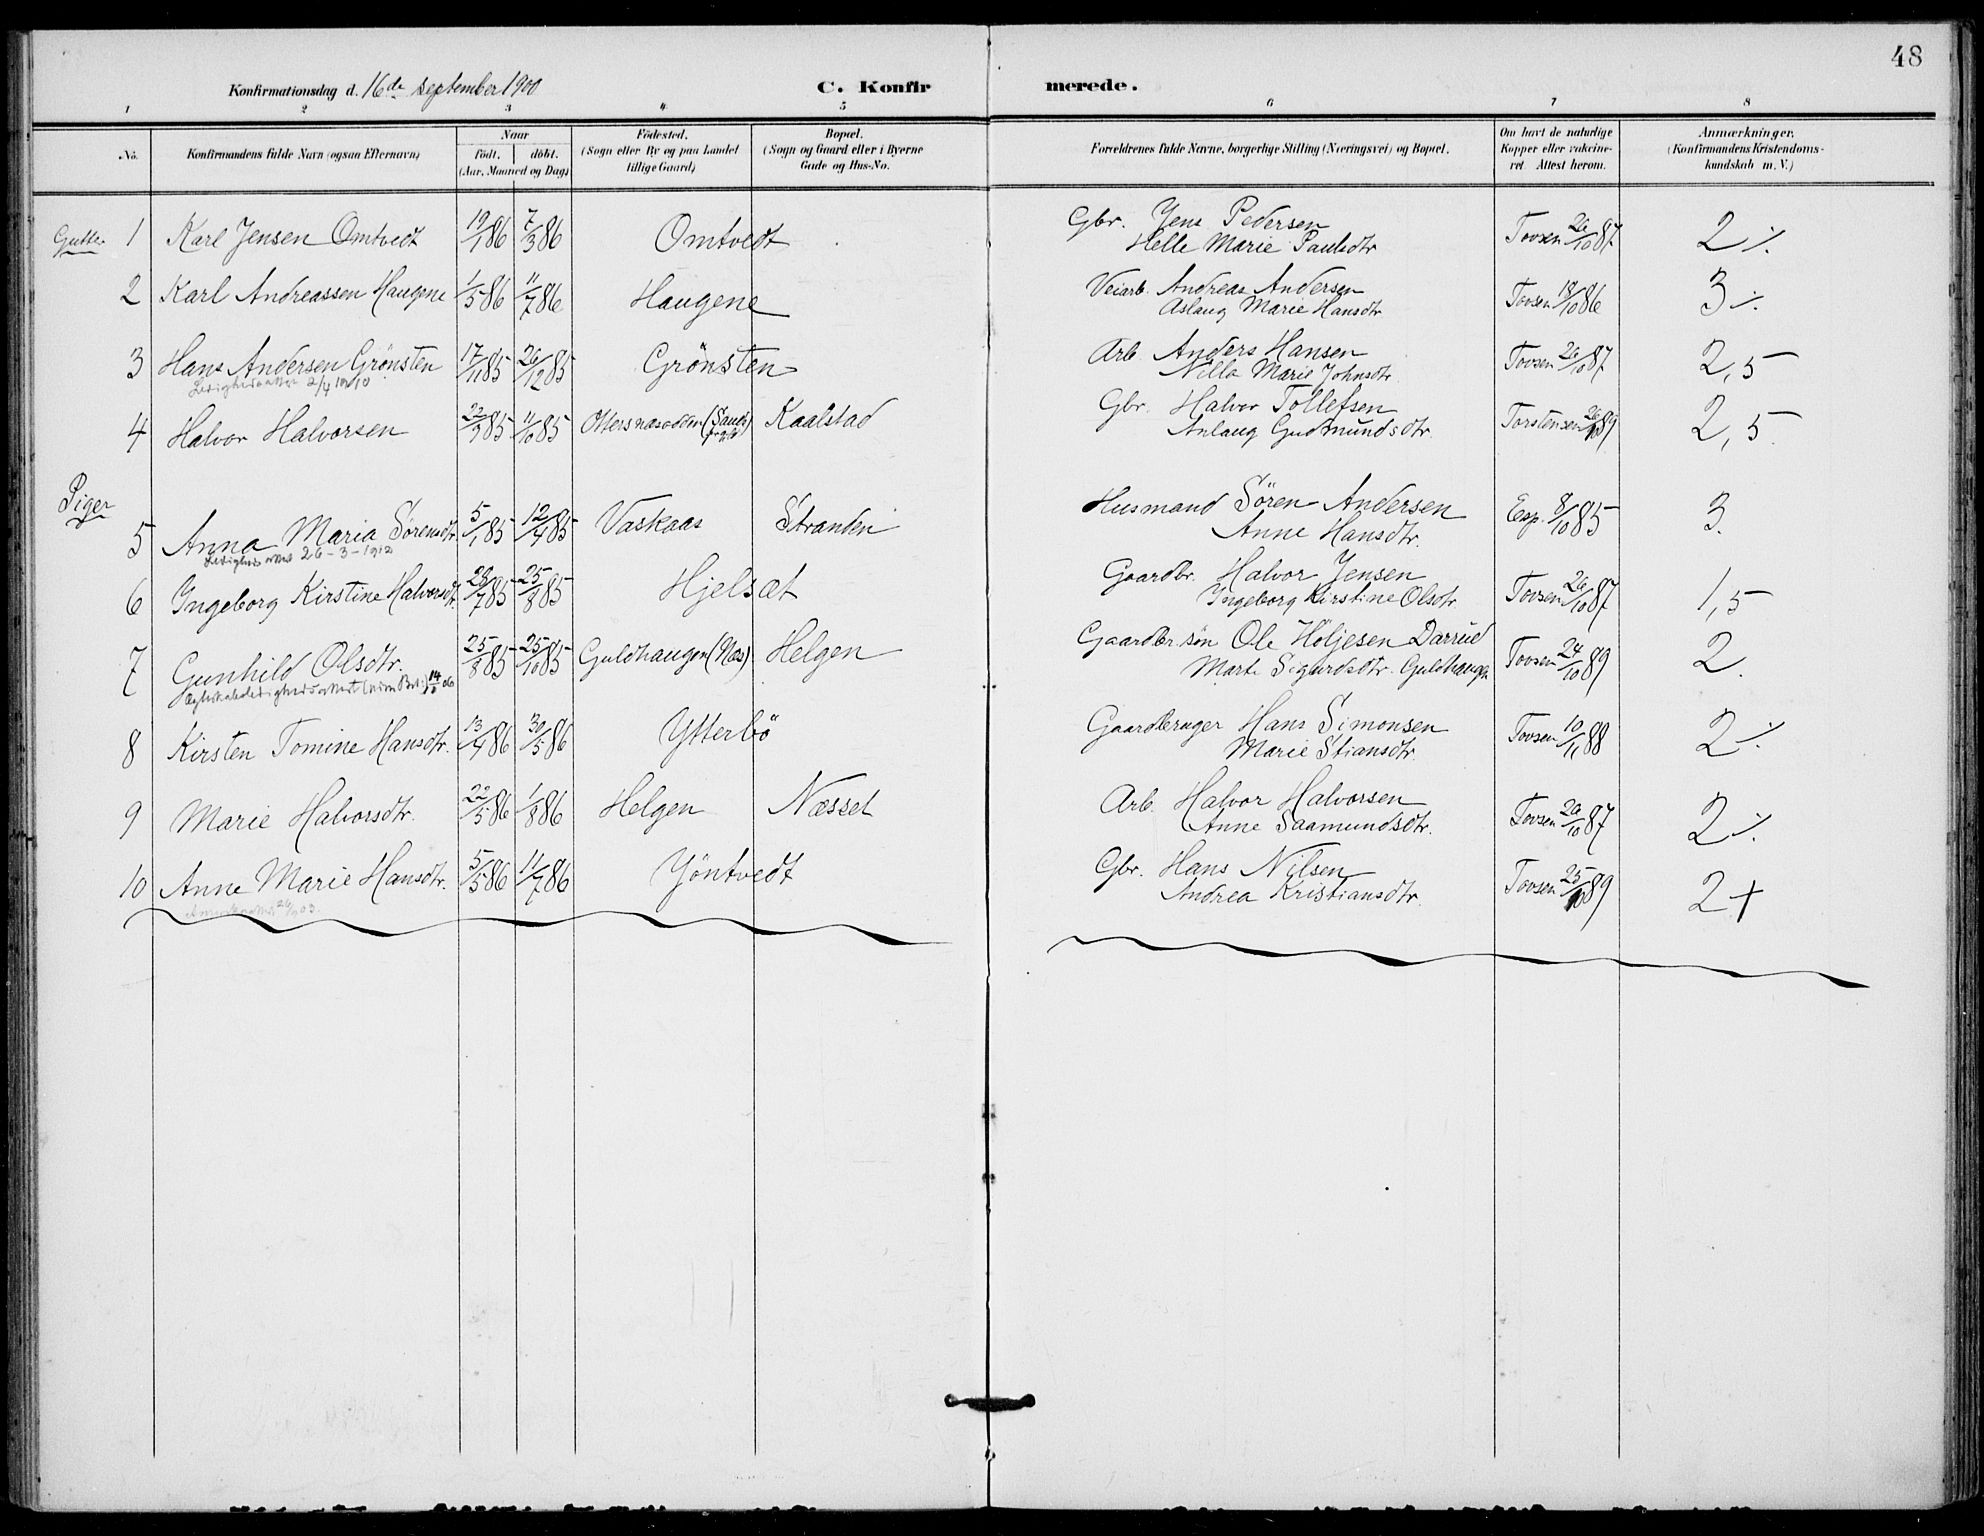 48
Konfirmationsdag d. 16de september 1900 C. Konfirmerede.
1 2 3 4 5 6 7 8
No. Konfirmandens fulde Navn (ogsaa Efternavn) Naar födt. döbt. (Aar, Maaned og Dag) Födested. (Sogn eller By og paa Landet tillige Gaard) Bopæl. (Sogn og Gaard eller i Byerne Gade og Hus-No. Forældrenes fulde Navne, borgerlige Stilling (Næringsvei) og Bopæl. Om havt de naturlige Kopper eller vaccineret Attest herom. Anmærkninger. (Konfirmandens Kristendomskundskab m. V.)
Gutter 1 Karl Jensen Omtvedt 19/1 86 7/3 86 Omtvedt Gbr. Jens Pedersen Tovsen 26/10 87 2 %
Helle Marie Paulsdtr
2 Karl Andreassen Haugene 1/5 86 11/7 86 Haugene Veiarb. Andreas Andersen Tovsen 18/10 86 3 %
Aslaug Marie Hansdtr
3 Hans Andersen Grönsten 17/11 85 26/12 85 Grönsten Arb. Anders Hansen Tovsen 26/10 87 2,5
2/4 1910 Nilla Marie Johnsdtr
4 Halvor Halvorsen 22/9 85 11/10 85 Ottersnæsodden (Sande) Kaalstad Gbr. Halvor Tollefsen Torstensen 89 2,5
Anlaug Gudmundsdtr.
Piger
5 Anna Maria Sörensdtr. 5/1 85 12/4 85 Vaskaas Stranden Husmand Sören Andersen Esp. 8/10 85 3.
Ledighedsattest 26-3-1912 Anne Hansdtr.
6 Ingeborg Kirstine Halvorsdtr. 28/7 85 25/8 85 Hjelsæt Gaardbr. Halvor Jensen Tovsen 26/10 87 1,5
Ingeborg Kirstine Olsdtr
7 Gunhild Olsdtr. 25/8 85 25/10 85 Guldhaugen (Næs) Helgen Gaardbr. sön Ole Höljesen Darrud Tovsen 24/10 89 2.
Marte Sigurdsdtr. Guldhaugen
8 Kirsten Tomine Hansdtr. 13/4 86 30/5 86 Ytterbö Gaardbruger Hans Simonsen Tovsen 10/11 88 2 %
Marie Stiansdtr.
9 Marie Halvorsdtr. 22/5 86 1/8 86 Helgen Næsset Arb. Halvor Halvorsen Tovsen 26/10 87 2 %
Anne Saamundsdtr.
10 Anne Marie Hansdtr. 5/5 86 11/7 86 Yöntvedt Gbr. Hans Nilsen Tovsen 25/10 89 2+
Andrea Kristiansdtr.